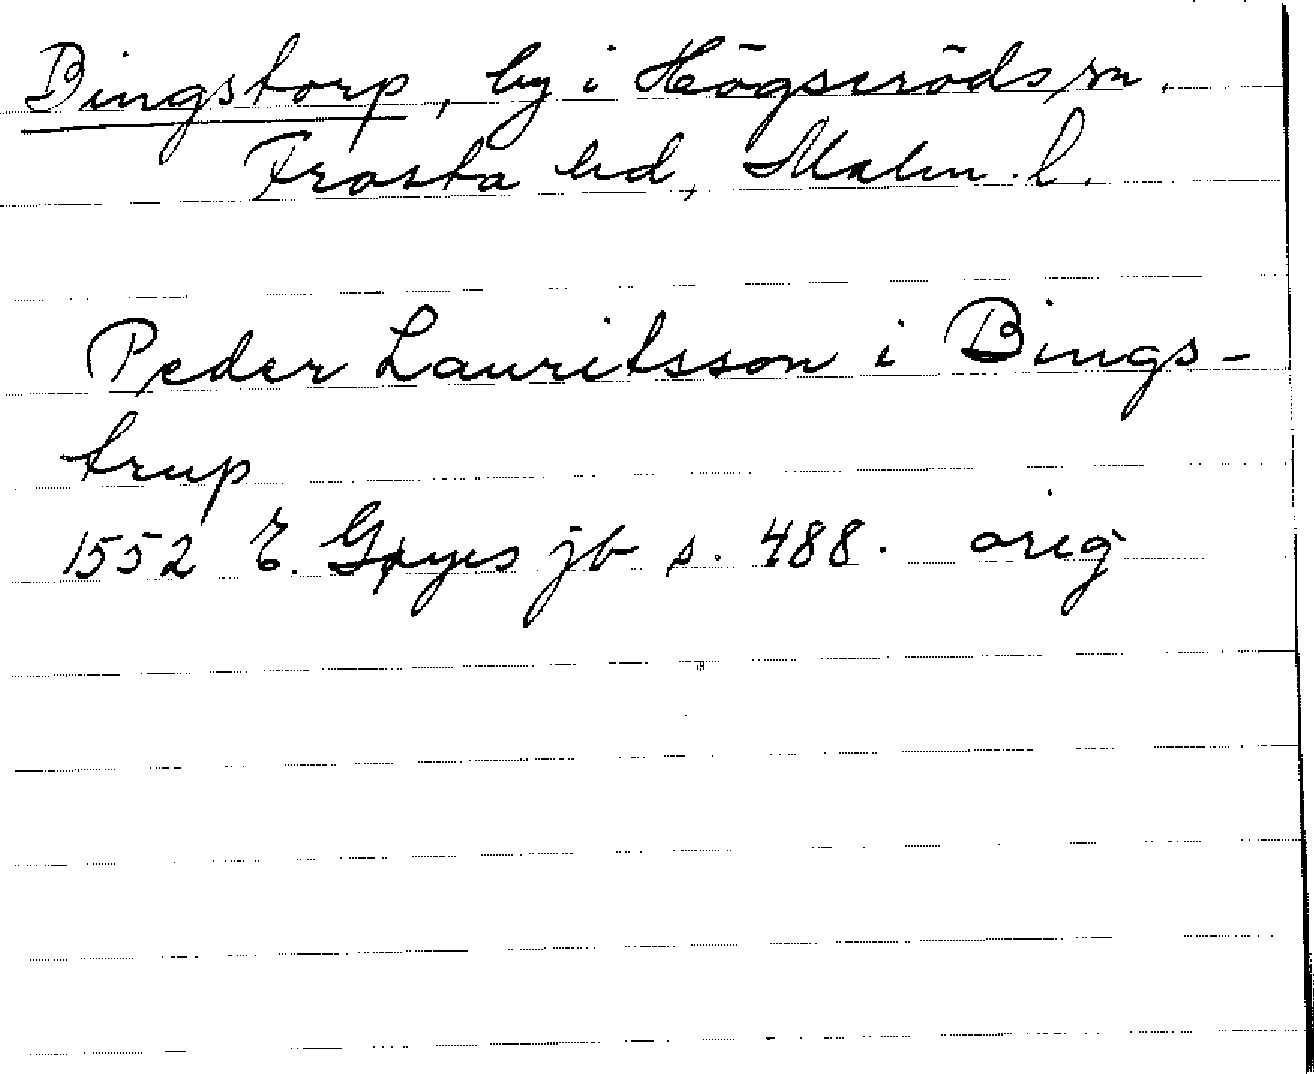 Bingstorp, by i Högseröds sn.
Frosta hd, Malm. l.
Peder Lauritsson i Bings-
trup
1552 E. Gøyes jb s. 488. orig